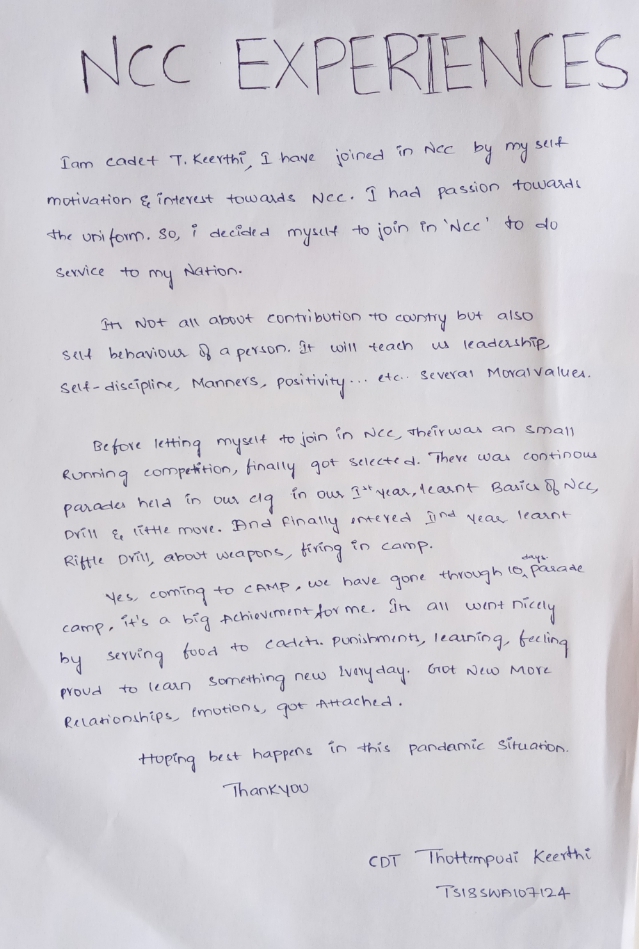 NCC EXPERIENCES
Iam cadet T. Keerthi, I have joined in NCC by my self
motivation & interest towards NCC. I had passion towards
the uniform. So, i decided myself to join in 'NCC' to do
service to my Nation.
Its Not all about contribution to country but also
self behaviour of a person. It will teach us leadership,
self-discipline, Manners, positivity... etc.. several Moral values.
Before letting myself to join in NCC, their was an small
Running competition, finally got selected. There was continous
parades held in our clg in our Ist year, learnt Basics of NCC,
Drill & little more. And finally intered IInd year learnt
Riffle Drill, about weapons, firing in camp.
Yes, coming to CAMP, we have gone through 10 days parade
camp, it's a big Achievement for me. Its all went nicely
by serving food to cadets. punishments, learning, feeling
proud to learn something new Iveryday. Got New More
Relationships, emotions, got Attached.
Hoping best happens in this pandamic situation.
Thankyou
CDT Thottempudi Keerthi
TS18SWA107124